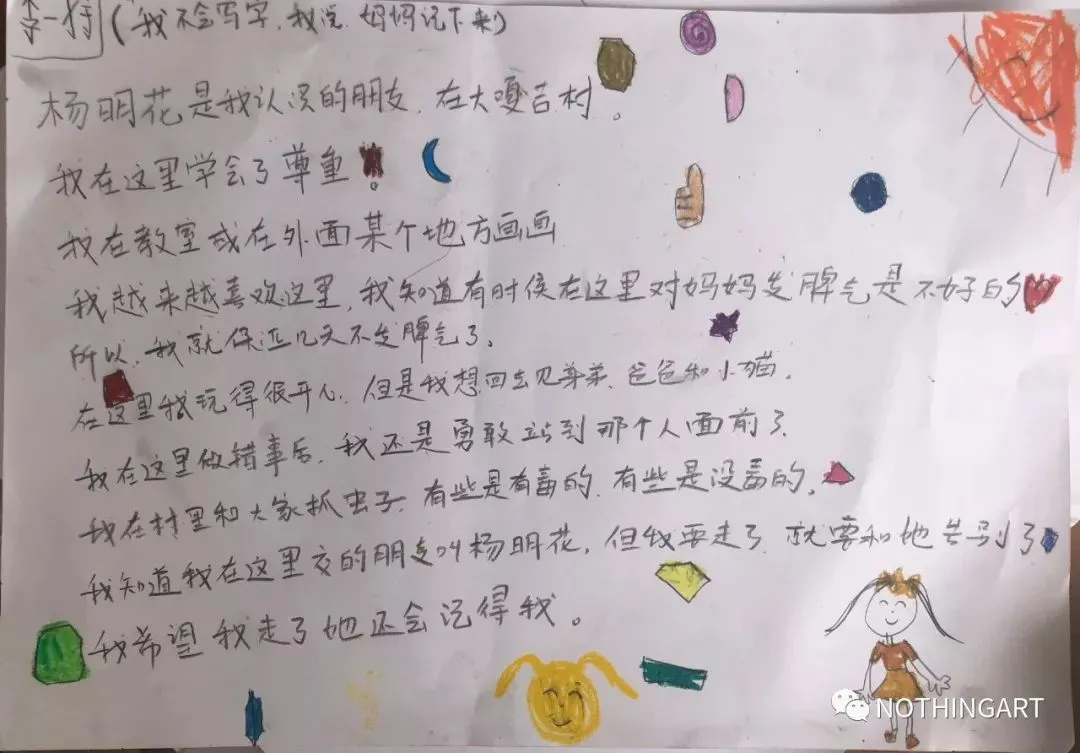 李一狩(我不会写字,我说,妈妈记下来)
杨明花是我认识的朋友.在大嘎吉村。
我在这里学会了尊重。
我在教室或在外面某个地方画画
我越来越喜欢这里,我知道有时侯在这里对妈妈发脾气是不好的
所以,我就保证几天不发脾气了。
在这里我玩得很开心.但是我想回去见弟弟、爸爸和小猫.
我在这里做错事后.我还是勇敢站到那个人面前了.
我在村里和大家抓虫子.有些是有毒的.有些是没毒的.
我知道我在这里交的朋友叫杨明花.但我要走了.就要和她告别了
我希望我走了她还会记得我。
NOTHINGART